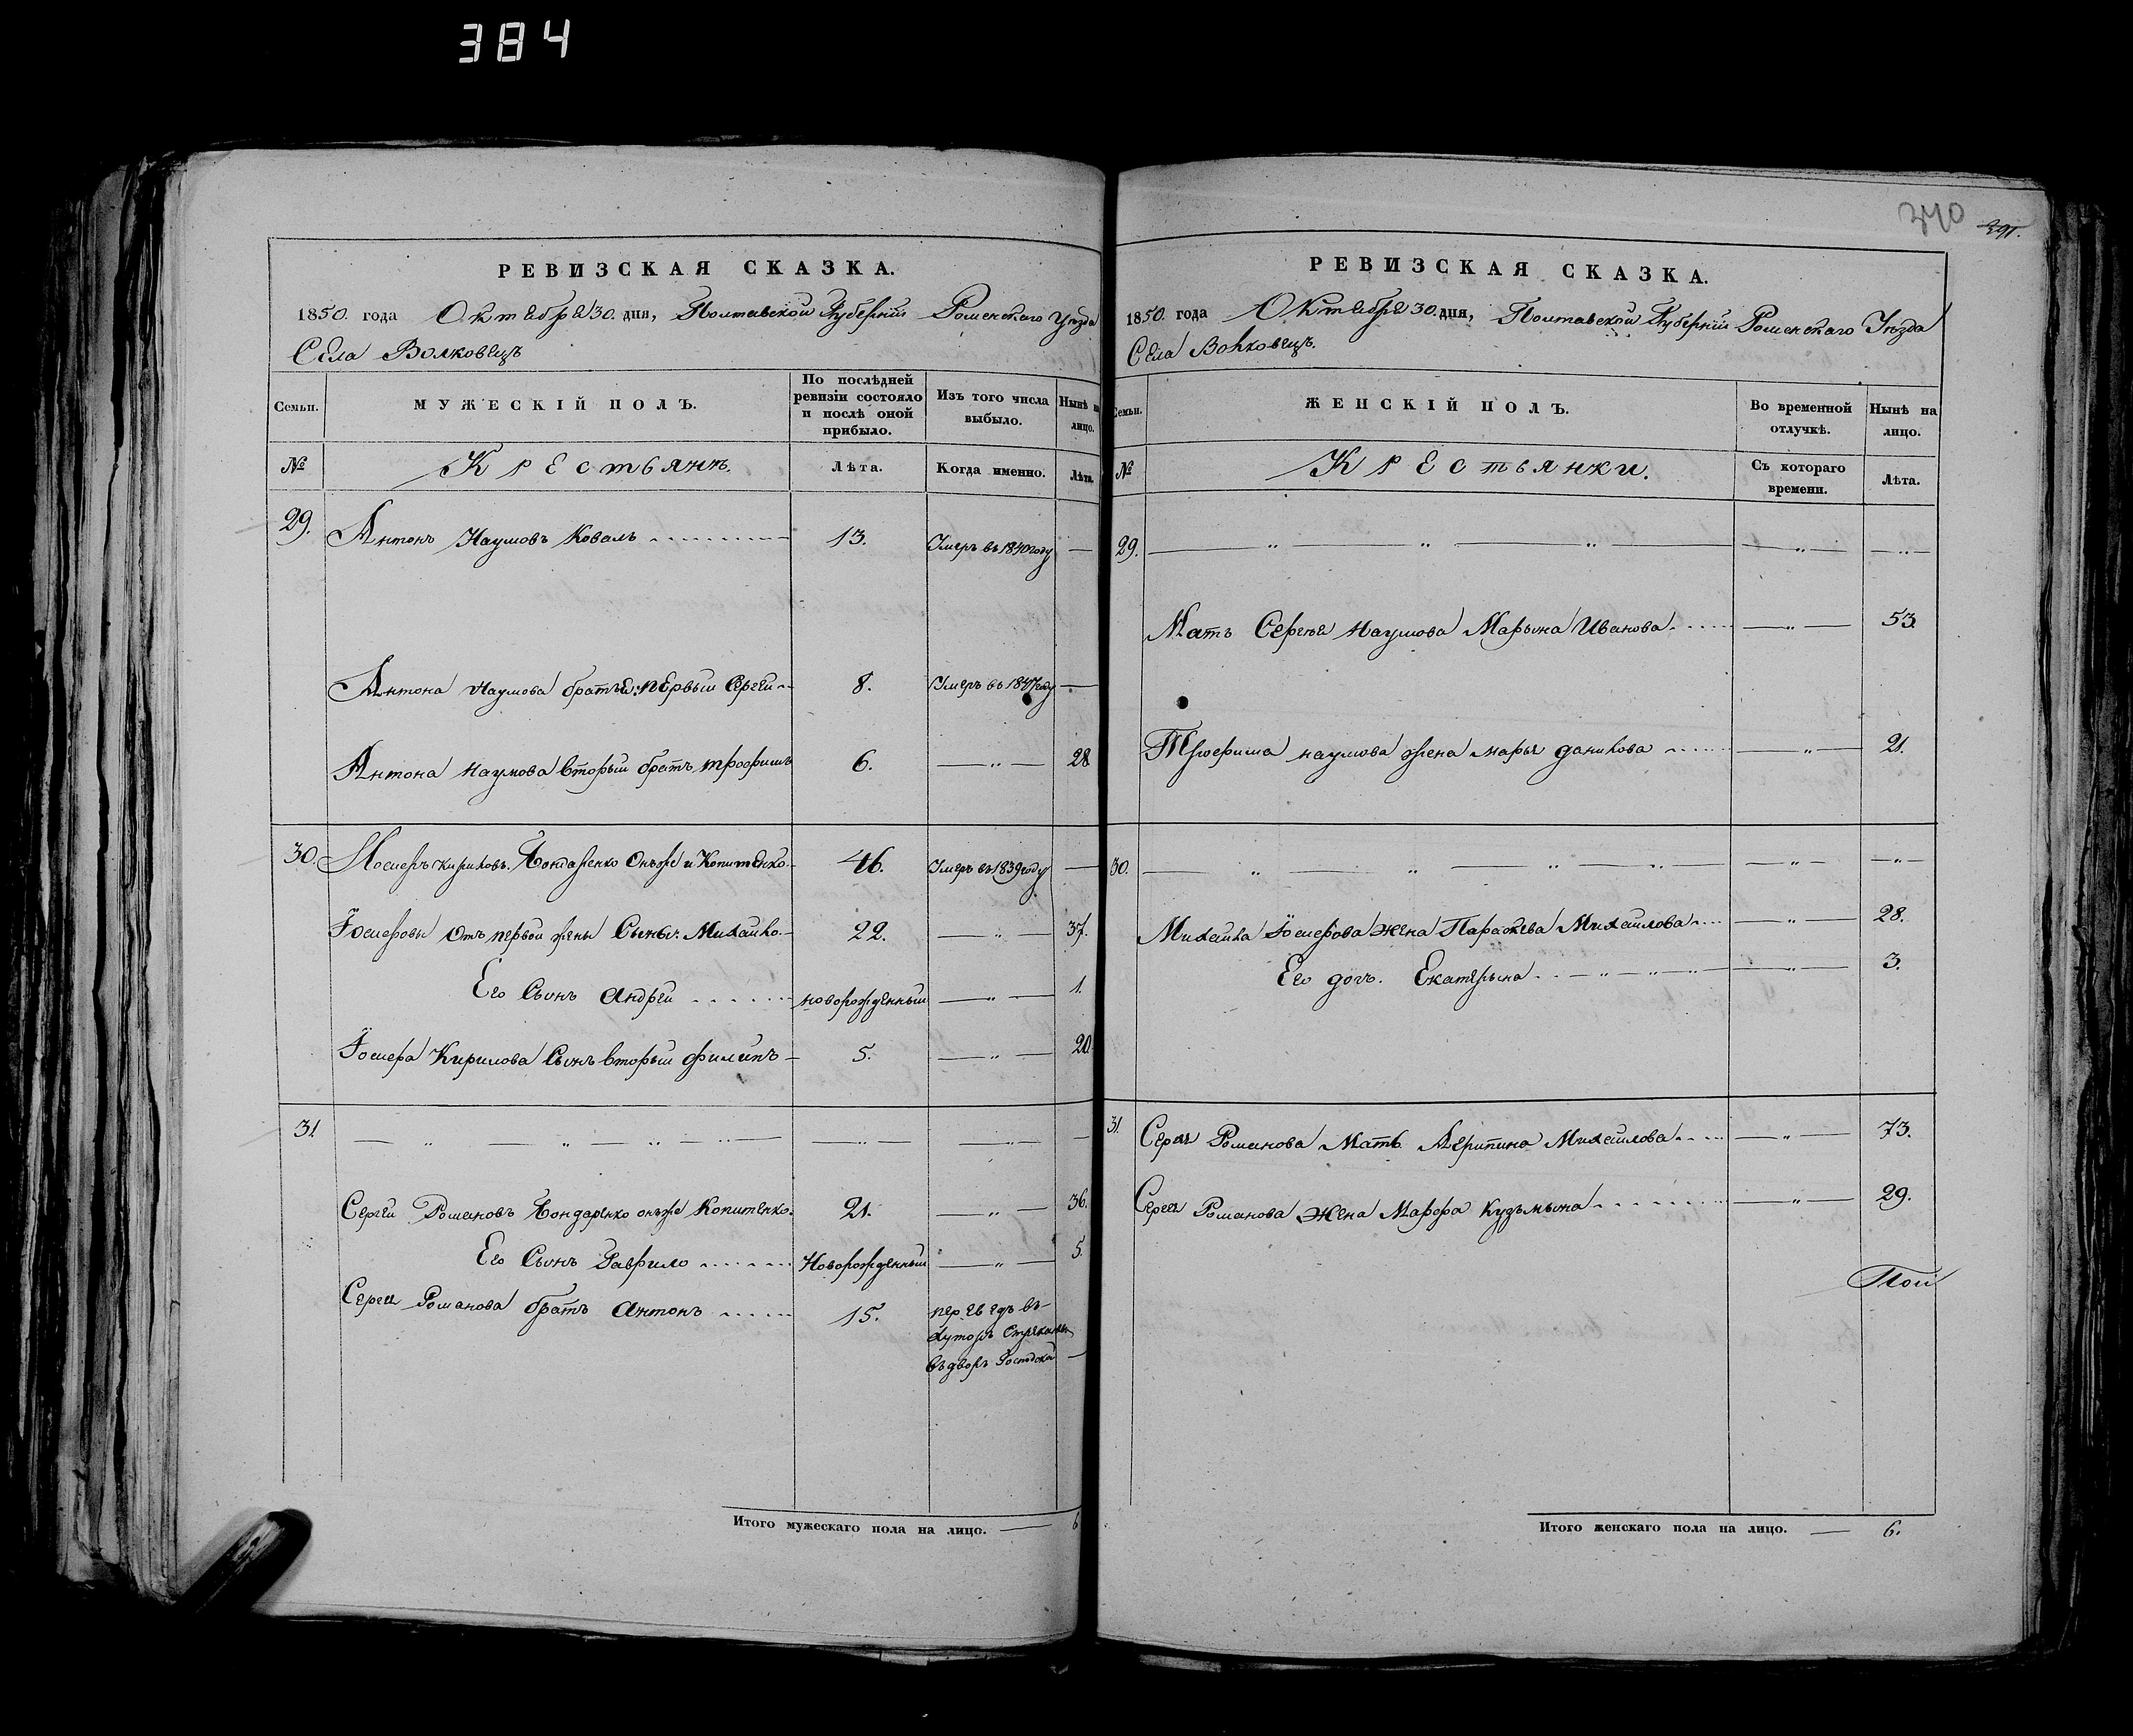 384
340
391.
РЕВИЗСКАЯ СКАЗКА.
1850. года Октября 30. дня, Полтавской Губернїи Роменскаго Уѣзда
Села Волковецъ
Семьи. МУЖЕСКІЙ ПОЛЪ. По послѣдней ревизіи состояло и послѣ оной прибыло. Изъ того числа выбыло. Нынѣ на лицо.
№ Крестьянъ. Лѣта. Когда именно. Лѣта.
29. Антонъ Наумовъ Коваль 13. Умеръ въ 1840 году —
Антона Наумова братья: первый Сергей 8. Умеръ въ 1847 году —
Антона Наумова вторый братъ трофимъ 6. — " — 28
30. Кириловъ. Бондаренко онъже и Копитенко 46. Умеръ въ 1839 году —
отъ первой жены Сынъ: Михайло 22. — " — 37.
Его Сынъ Андрей новорожденный — " — 1.
Кирилова Сынъ вторый филипъ 5. — " — 20.
31. — " — " — " —
Сергей Романовъ Бондаренко онъже Копитенко. 21. — " — 36.
Его Сынъ Гаврило Новорожденный — " — 5.
Сергея Романова братъ Антонъ 15. переведъ въ
хуторъ
въ дворъ —
Итого мужескаго пола на лицо. — 6
РЕВИЗСКАЯ СКАЗКА.
1850. года Октября 30. дня, Полтавской Губернїи Роменскаго Уѣзда
Села Волковецъ.
Семьи. ЖЕНСКІЙ ПОЛЪ. Во временной отлучкѣ. Нынѣ на лицо.
№ Крестьянки. Съ котораго времени. Лѣта.
29. — " — " — " —
Мать Сергея Наумова Марына Иванова — " — 53.
Трофима наумова жена марья данилова — " — 21.
30. — " — " — " —
Михайла жена Параскева Михайлова — " — 28.
Его дочь. Екатерына — " — 3.
31. Сергея Романова Мать Михайлова — " — 73.
Сергея Романова Жена Марфа Кузьмына — " — 29.
Итого женскаго пола на лицо. — 6.